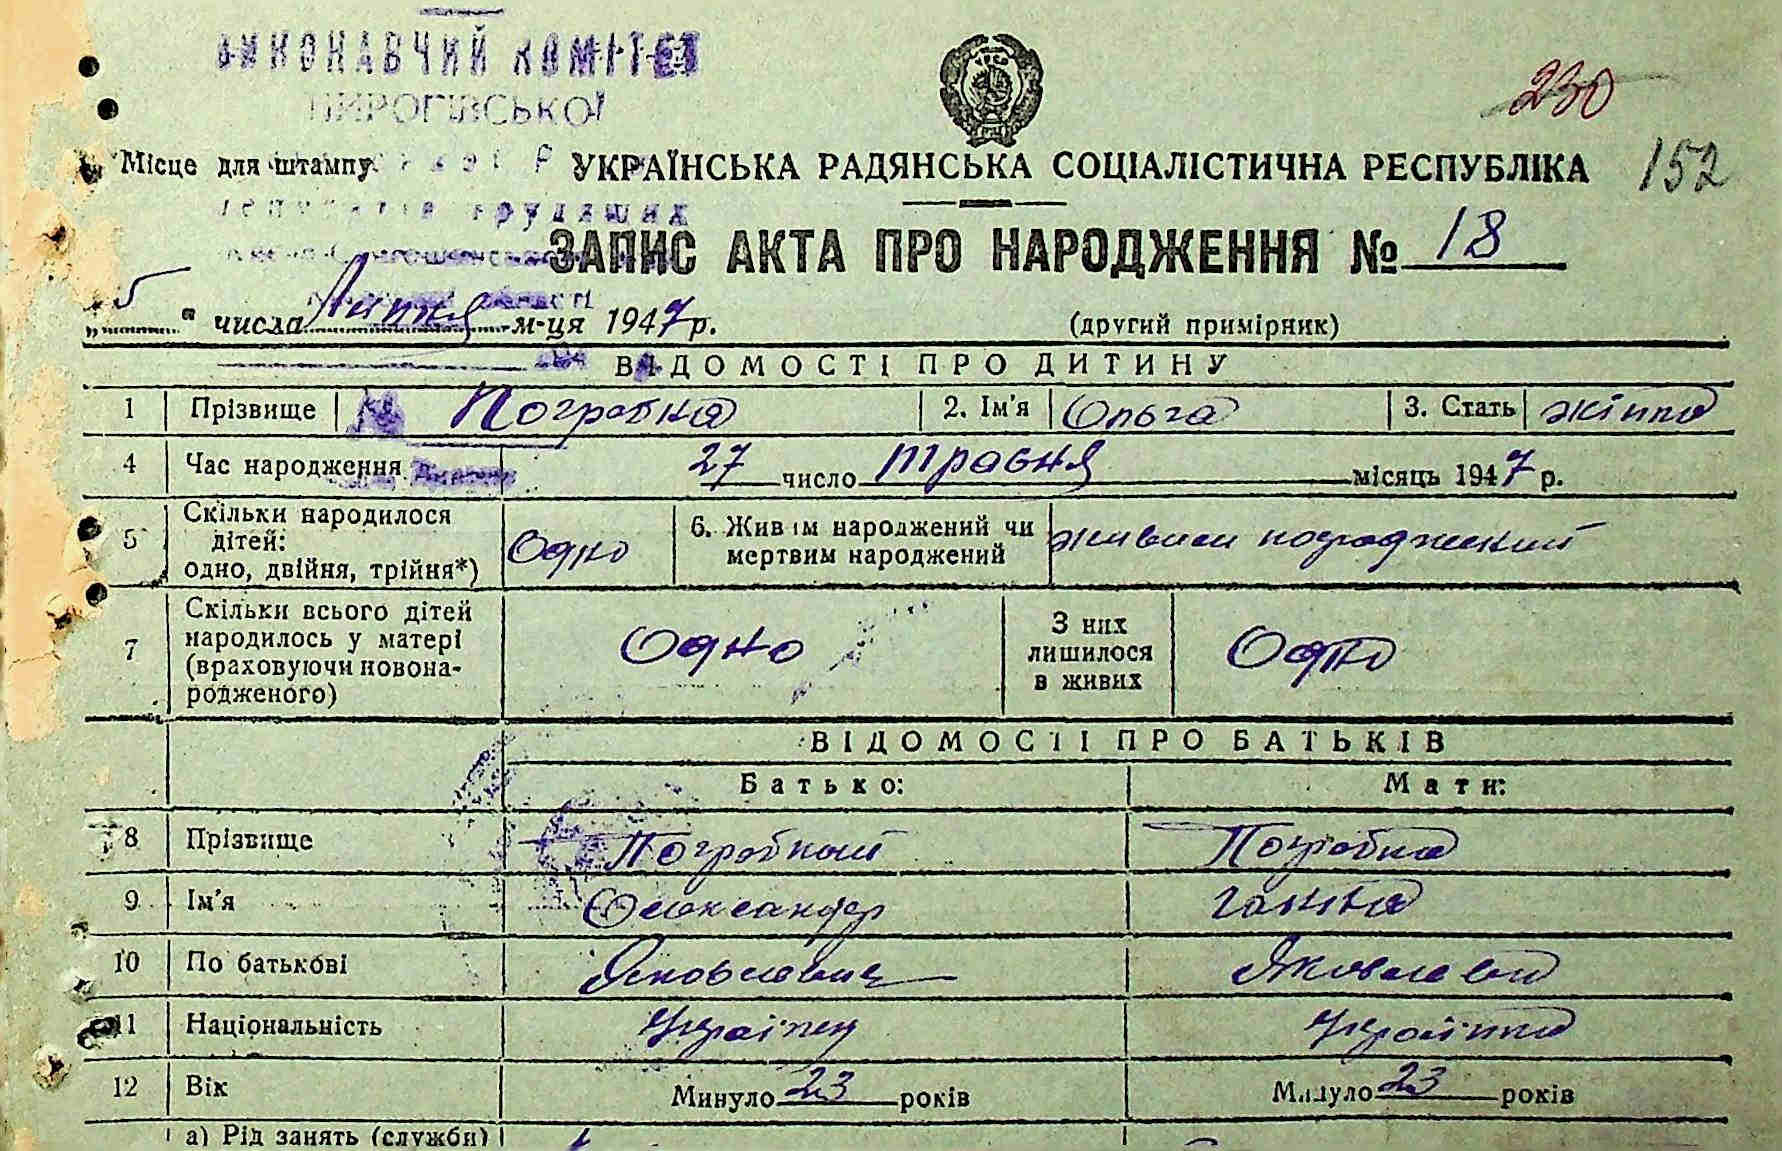 ВИКОНАВЧИЙ КОМІТЕТ
ПИРОГІВСЬКОЇ
230
Місце для штампу УКРАЇНСЬКА РАДЯНСЬКА СОЦІАЛІСТИЧНА РЕСПУБЛІКА 152
депутатів трудящих
ЗАПИС АКТА ПРО НАРОДЖЕННЯ № 18
„5“ числа Липня м-ця 1947 р. (другий примірник)
ВІДОМОСТІ ПРО ДИТИНУ
1 Прізвище Погребна 2. Ім'я Ольга 3. Стать жіноча
4 Час народження 27 число травня місяць 1947 р.
5 Скільки народилося дітей: одно, двійня, трійня*) Одно 6. Живим народжений чи мертвим народжений живим народжений
7 Скільки всього дітей народилось у матері (враховуючи новонародженого) Одно З них лишилося в живих Одно
ВІДОМОСТІ ПРО БАТЬКІВ
Батько: Мати:
8 Прізвище Погребний Погребна
9 Ім'я Олександр Ганна
10 По батькові Яковлевич Яковлевна
11 Національність Українец Українка
12 Вік Минуло 23 років Минуло 23 років
а) Рід занять (служби)